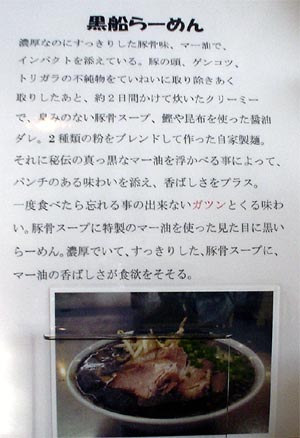 黒船らーめん
濃厚なのにすっきりした豚骨味、マー油で、
インパクトを添えている。豚の頭、ゲンコツ、
トリガラの不純物をていねいに取り除きあく
取りしたあと、約２日間かけて炊いたクリーミー
で、臭みのない豚骨スープ、鰹や昆布を使った醤油
ダレ。２種類の粉をブレンドして作った自家製麺。
それに秘伝の真っ黒なマー油を浮かべる事によって、
パンチのある味わいを添え、香ばしさをプラス。
一度食べたら忘れる事の出来ないガツンとくる味わ
い。豚骨スープに特製のマー油を使った見た目に黒い
らーめん。濃厚でいて、すっきりした、豚骨スープに、
マー油の香ばしさが食欲をそそる。